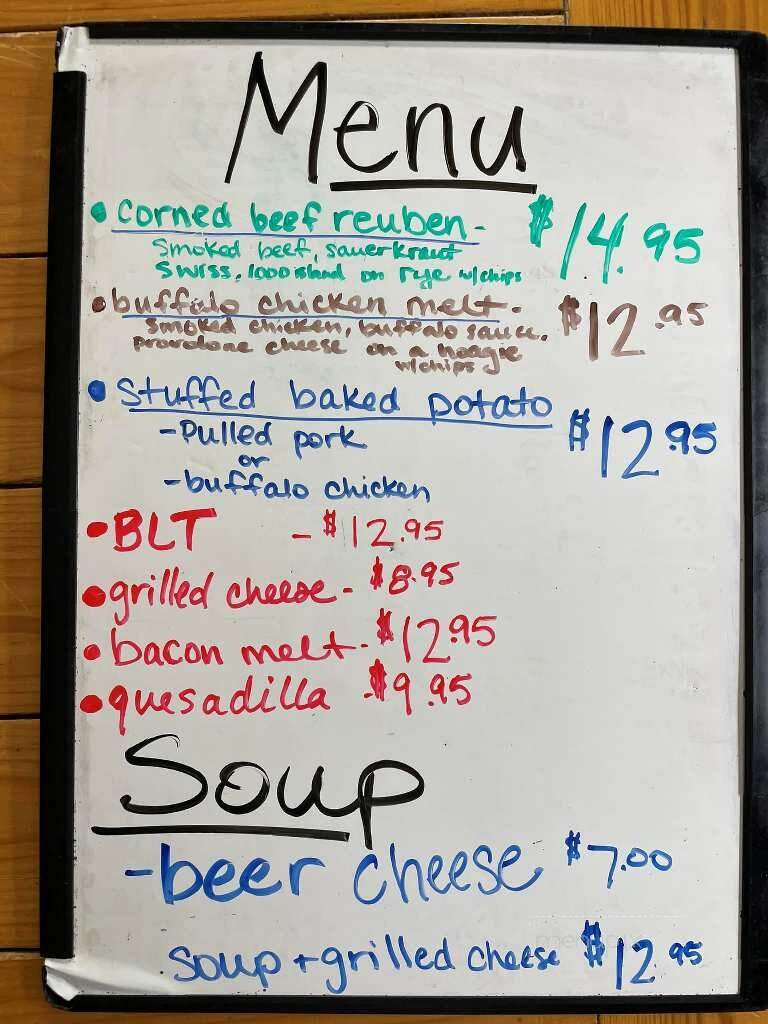 Menu
• corned beef reuben - $14.95
smoked beef, sauerkraut
swiss, 1000 island on rye w/chips
• buffalo chicken melt - $12.95
smoked chicken, buffalo sauce,
provolone cheese on a hoagie
w/chips
• Stuffed baked potato $12.95
- Pulled pork
or
- buffalo chicken
• BLT - $12.95
• grilled cheese - $8.95
• bacon melt - $12.95
• quesadilla - $9.95
Soup
- beer cheese $7.00
soup + grilled cheese $12.95